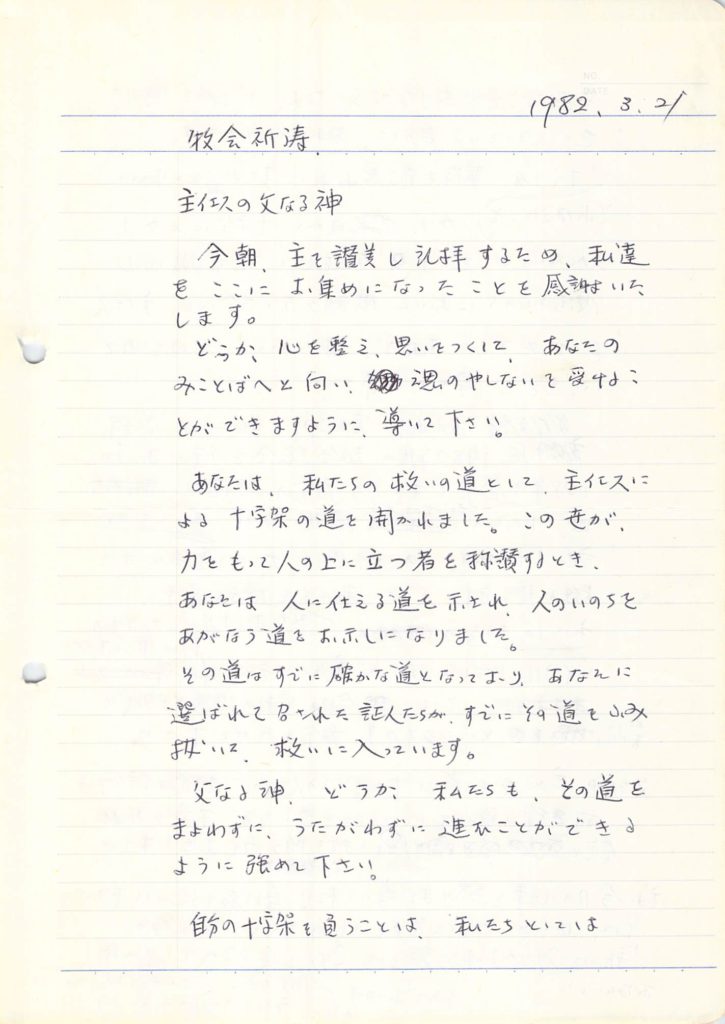 1982. 3. 21
牧会祈涛.
主イエスの父なる神
今朝、主を讃美し礼拝するため、私達
を ここに お集めになったことを感謝いた
します。
どうか、心を整え、思いをつくして、あなたの
みことばへと向い、魂のやしないを受けるこ
とができますように、導いて下さい。
あなたは、私たちの救いの道として、主イエスに
よる十字架の道を開かれました。この世が、
力をもって人の上に立つ者を称讃するとき、
あなたは 人に仕える道を示され、人のいのちを
あがなう道をお示しになりました。
その道はすでに確かな道となっており、あなたに
選ばれて召された証人たちが、すでにその道をふみ
抜いて、救いに入っています。
父なる神、どうか、私たちも、その道を
まよわずに、うたがわずに進むことができる
ように強めて下さい。
自分の十字架を負うことは、私たちといては